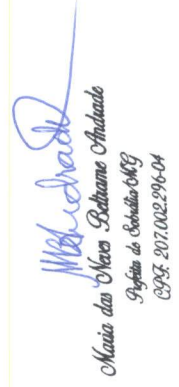 Maria das Neves Beltrame Andrade
Prefeita de Sobrália/MG
CPF. 207.002.296-04